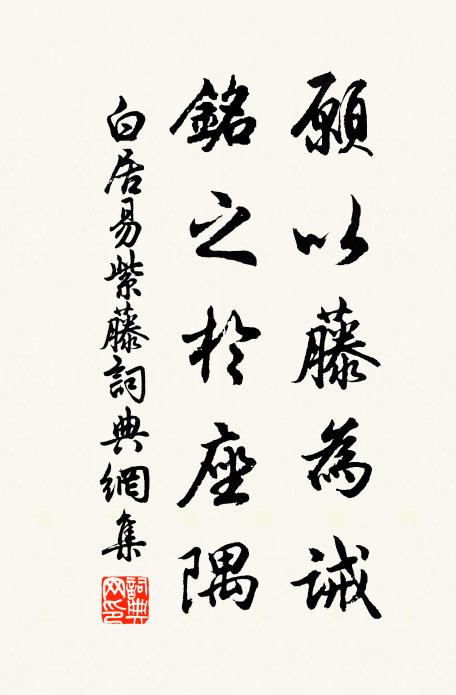 願以藤為誡
銘之於座隅
白居易紫藤詞典網集
詞典網印